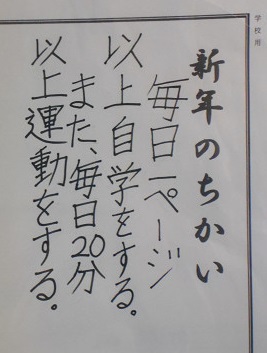 新年のちかい
毎日一ページ
以上自学をする。
また、毎日20分
以上運動をする。
学校用